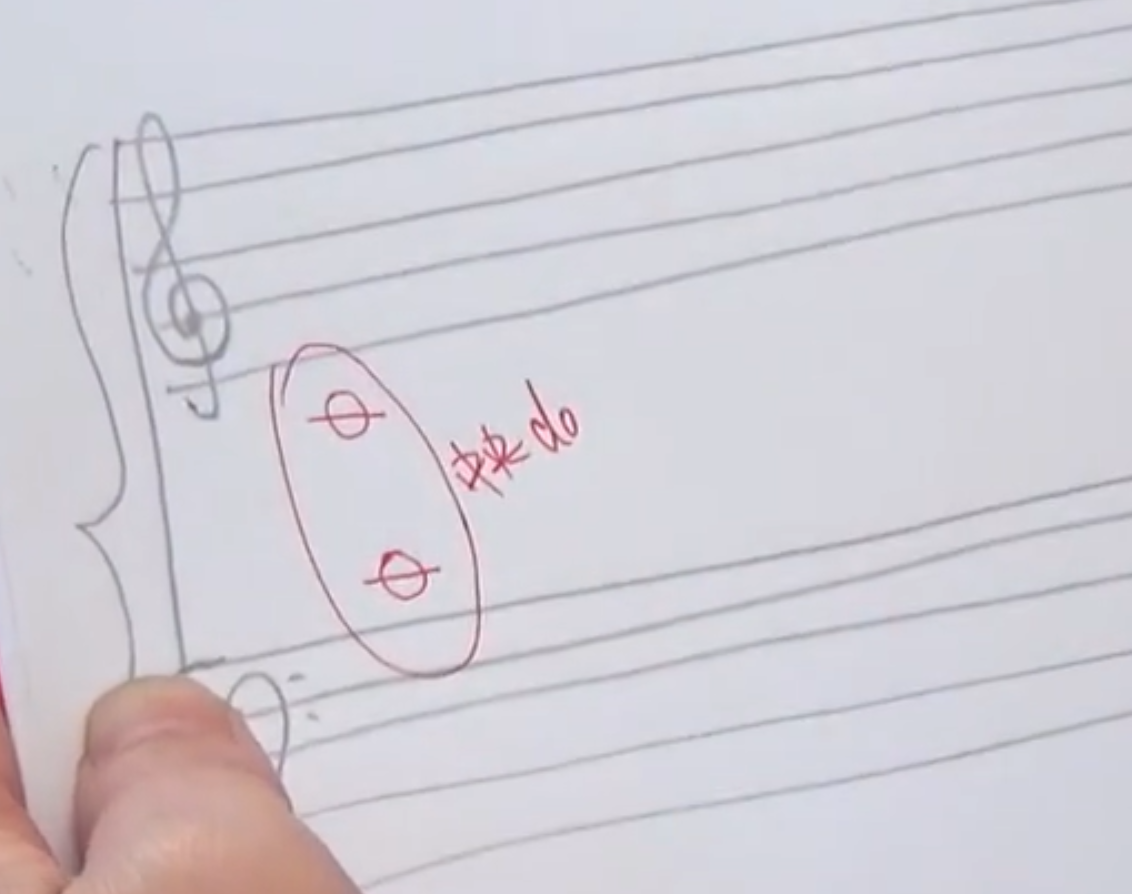 中央do